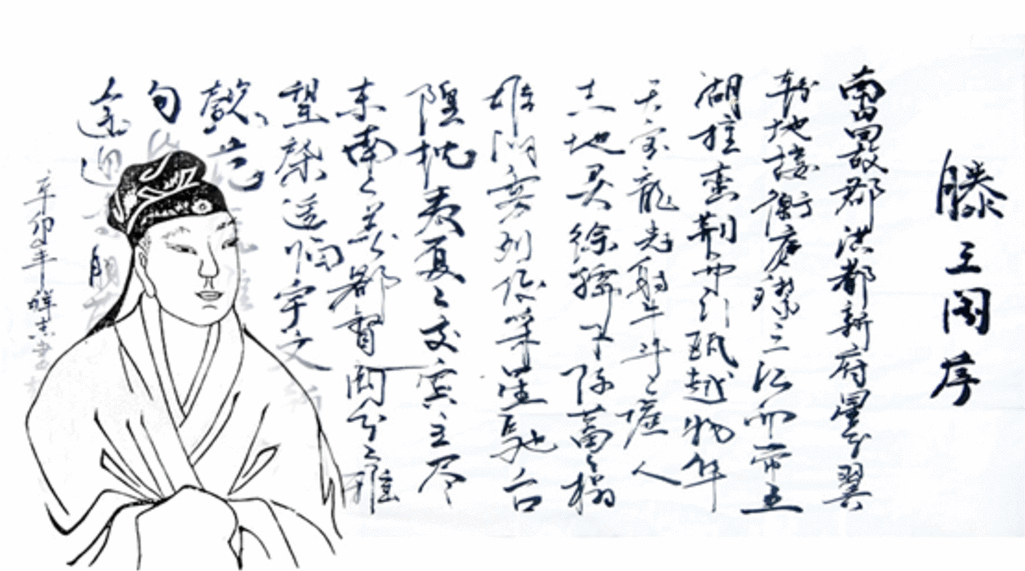 滕王阁序
南昌故郡洪都新府星分翼
轸地接衡庐襟三江而带五
湖控蛮荆而引瓯越物华
天宝龙光射牛斗之墟人
杰地灵徐孺下陈蕃之榻
雄州雾列俊采星驰台
隍枕夷夏之交宾主尽
东南之美都督阎公之雅
望棨遥临宇文新
懿范
旬
辛卯年